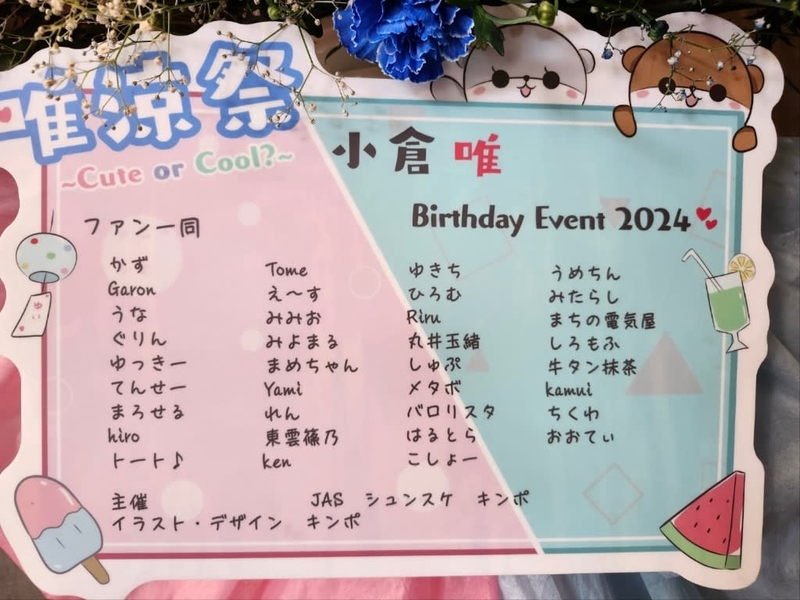 唯涼祭
~Cute or Cool?~
小倉 唯
Birthday Event 2024
ファン一同
かず Tome ゆきち うめちん
Garon え〜す ひろむ みたらし
うな みみお Riru まちの電気屋
ぐりん みよまる 丸井玉緒 しろもふ
ゆっきー まめちゃん しゅぷ 牛タン抹茶
てんせー Yami メタボ kamui
まろせる れん バロリスタ ちくわ
hiro 東雲篠乃 はるとら おおてぃ
トート♪ ken こしょー
主催 JAS シュンスケ キンポ
イラスト・デザイン キンポ
ゆい